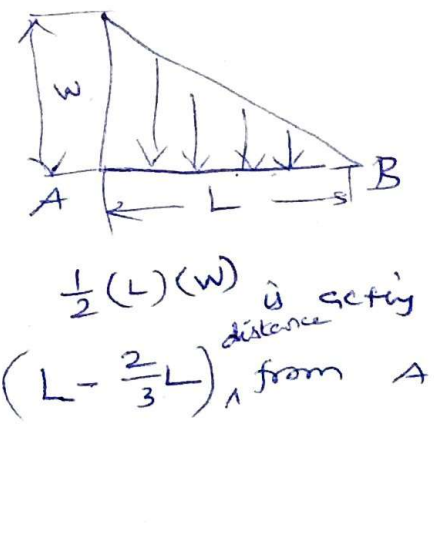 W
A
L
B
1/2 (L) (W) is acting
(L - 2/3 L) distance from A